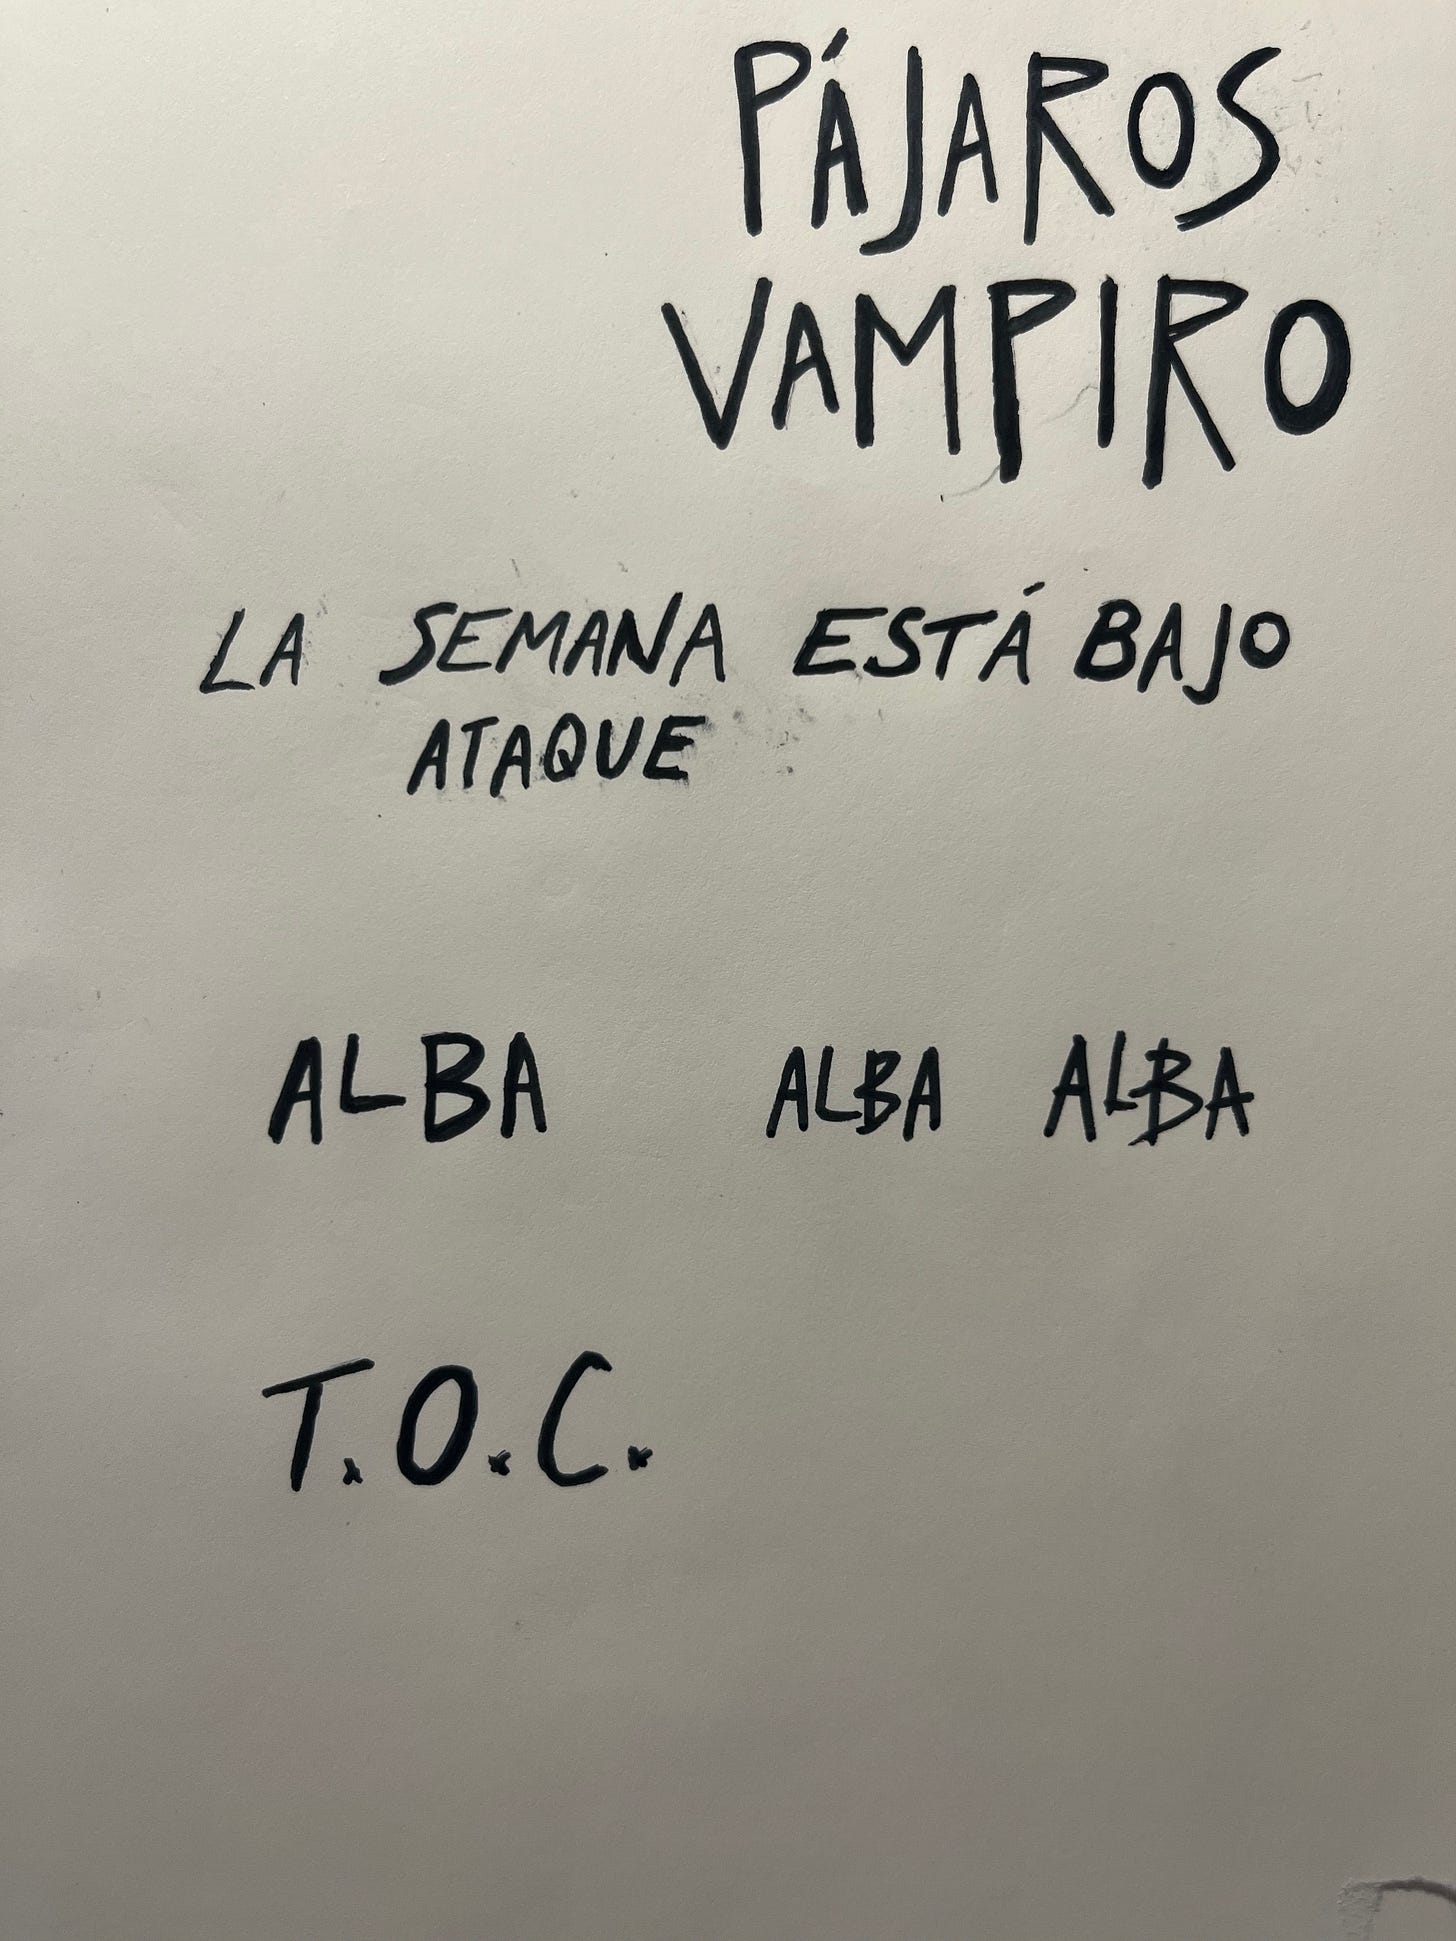 PÁJAROS
VAMPIRO
LA SEMANA ESTÁ BAJO
ATAQUE
ALBA ALBA ALBA
T.O.C.